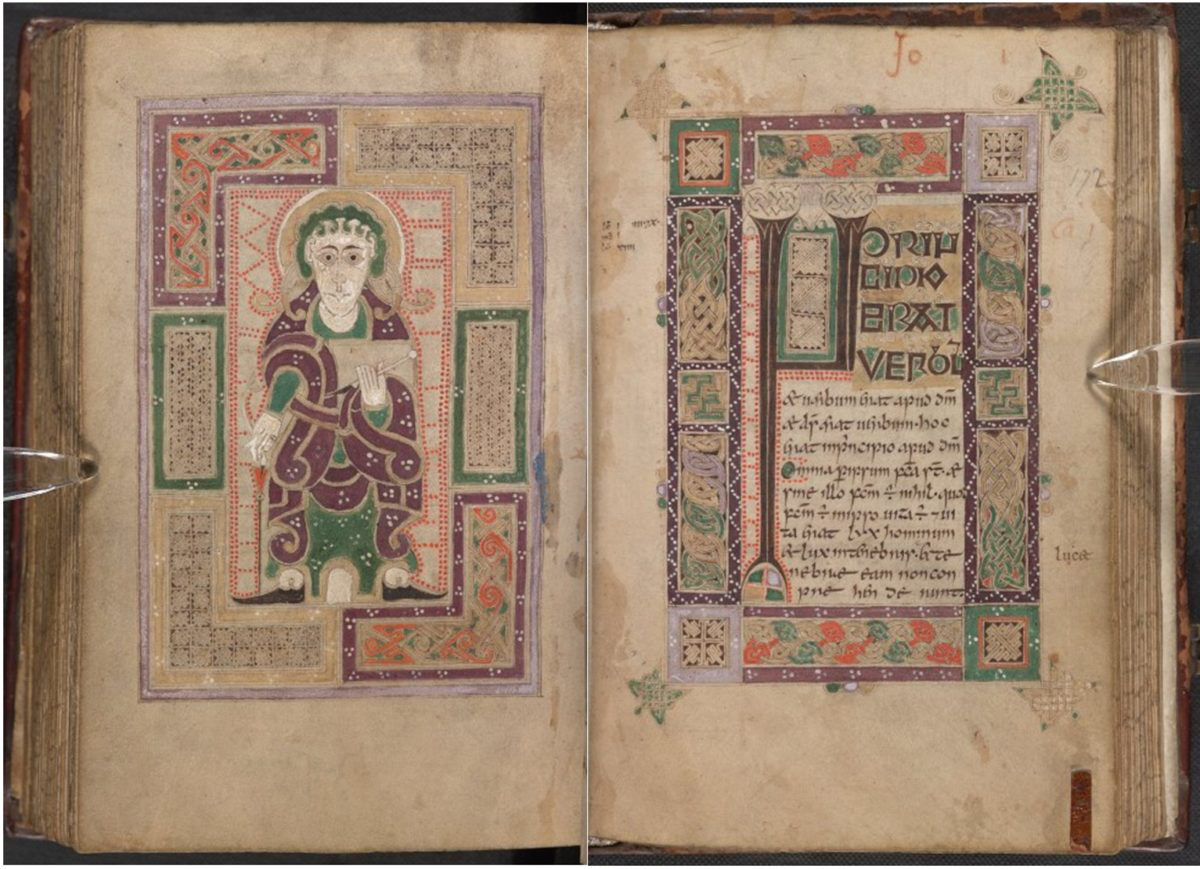 Jo 1
172
IN PRIN
CIPIO
ERAT
VERBU
& uerbum erat apud dm̄
& dr̄ erat uerbum· hoc
erat in principio apud dm̄
Omnia per ipsum fc̄a st̄· &
sine illo fc̄m ÷ nihil· quod
fc̄m ÷ in ipso uita ÷ ⁊ ui
ta erat lux hominum
& lux in tenebris &te
nebrae eam non con
prehenderunt
lucet